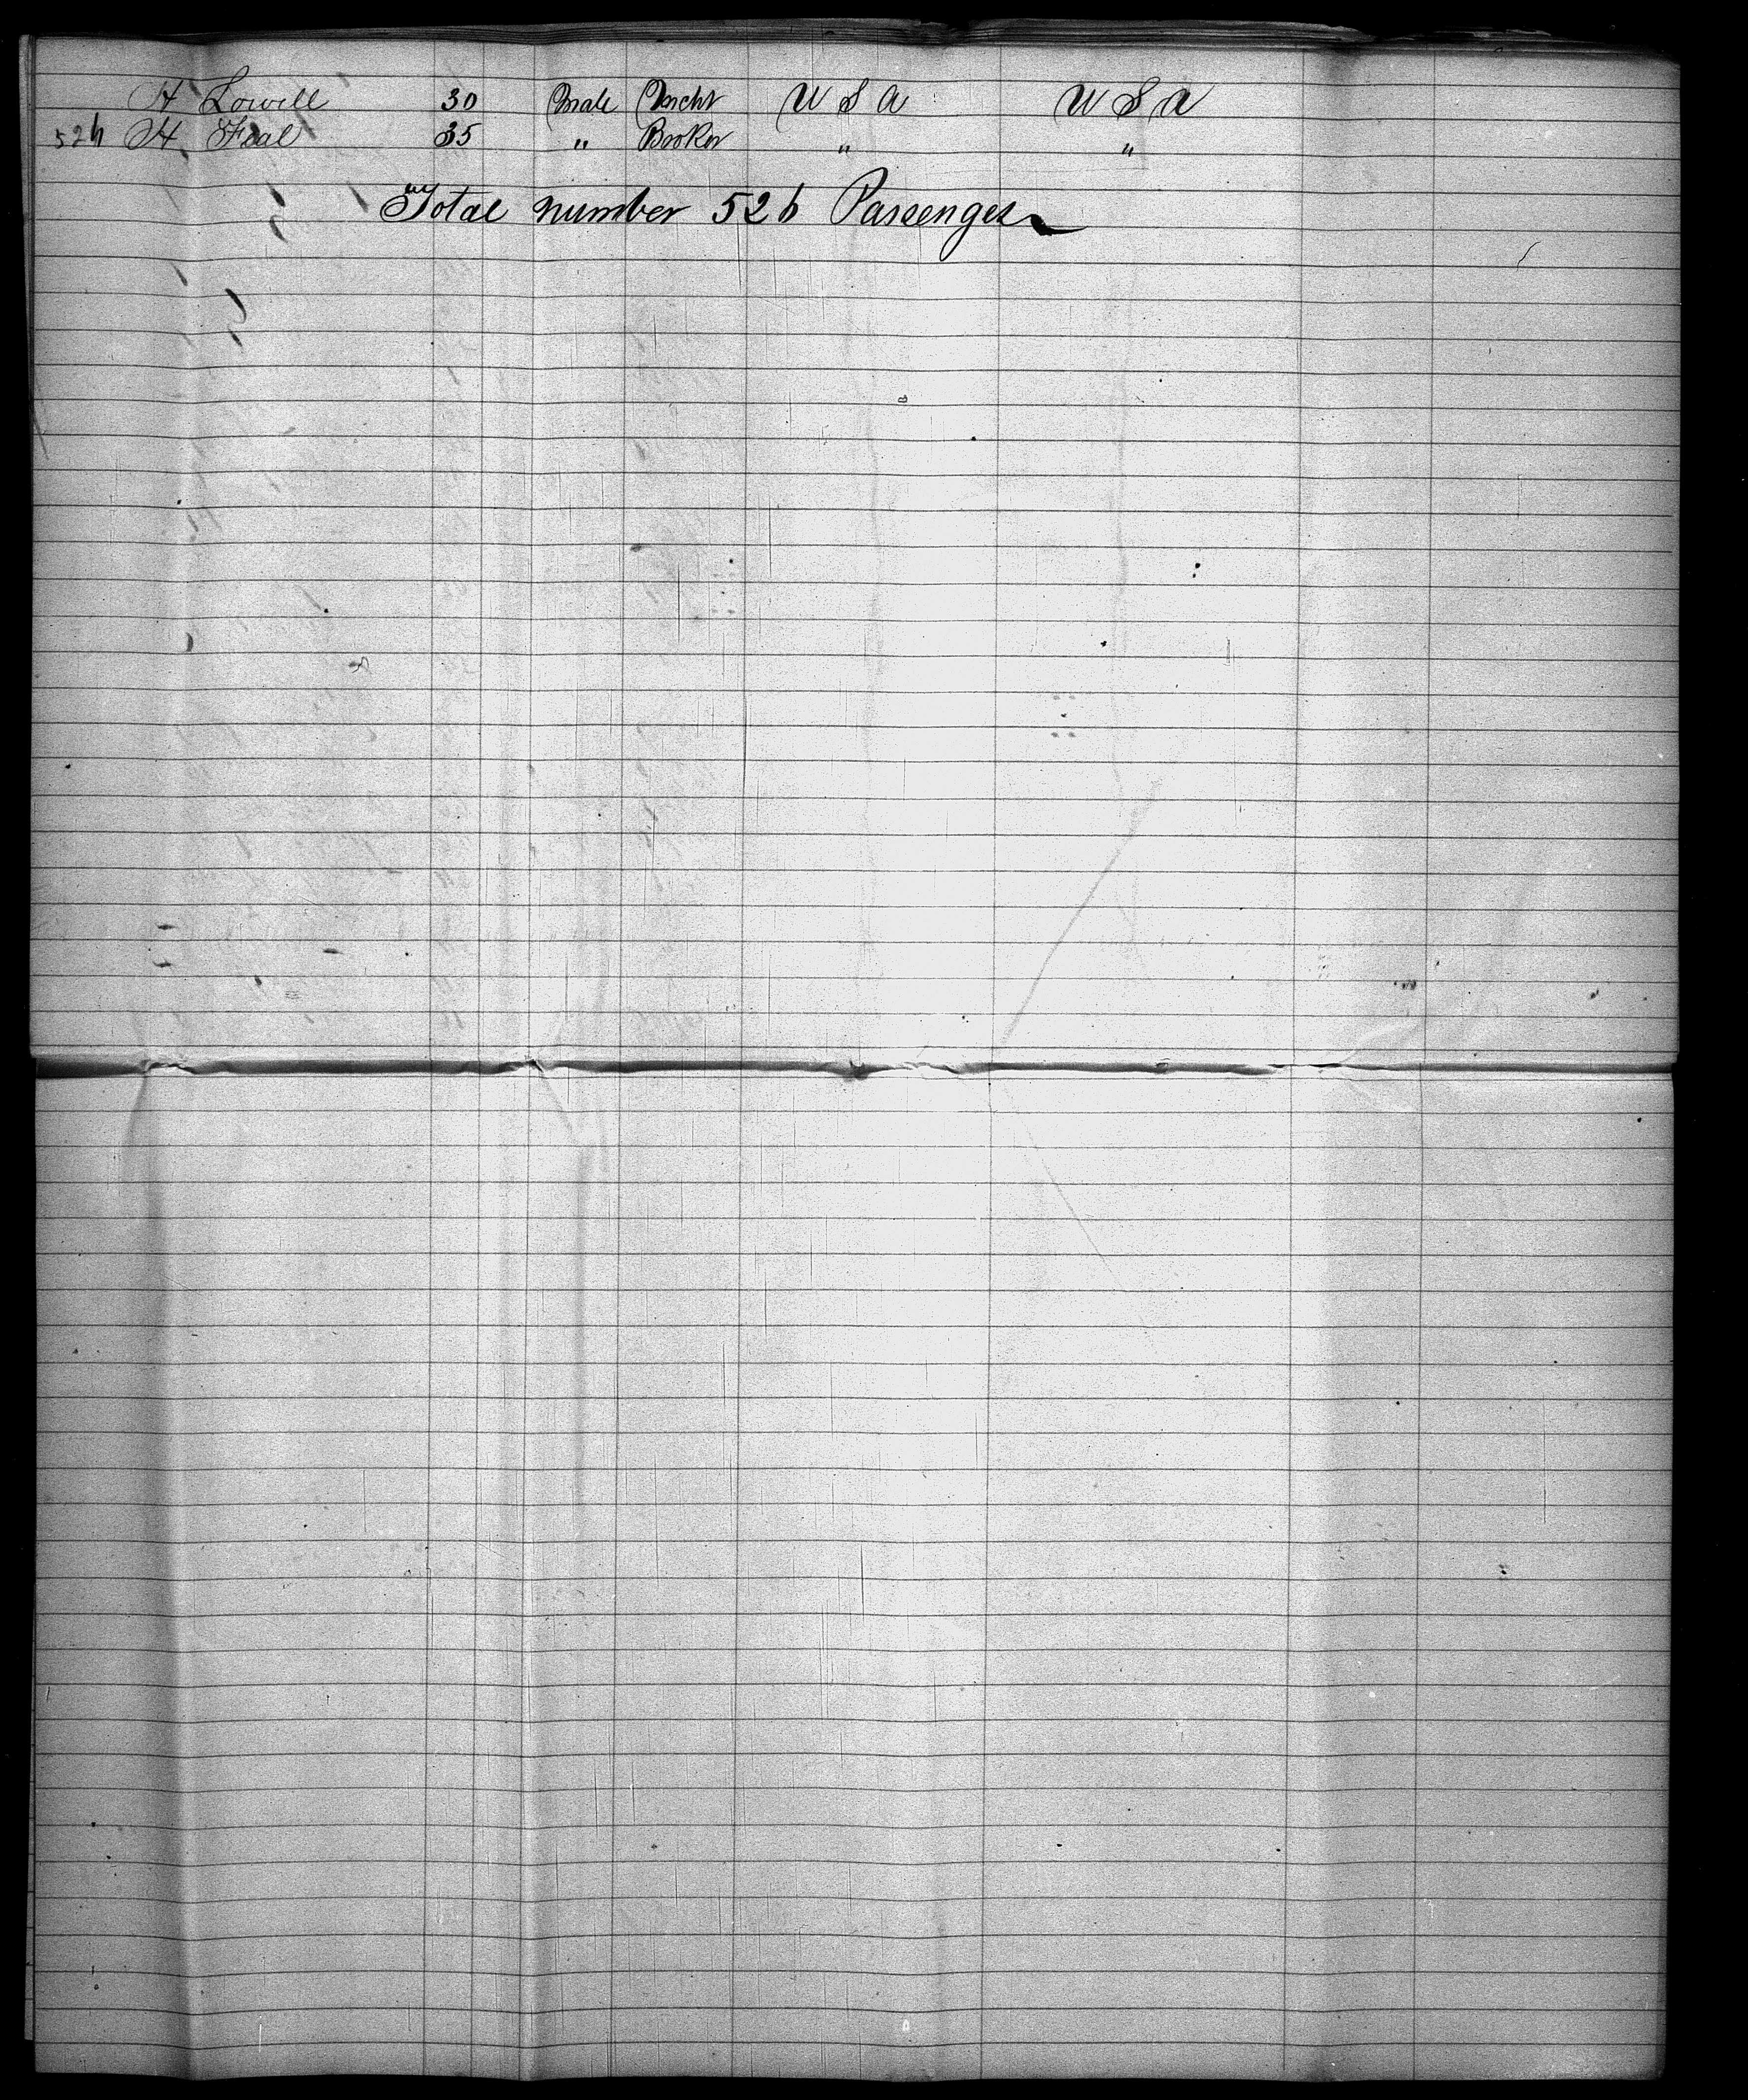 H Lowell 30 Male Mcht U S A U S A
526 H. Foal 35 " Broker " "
Total number 526 Passengers